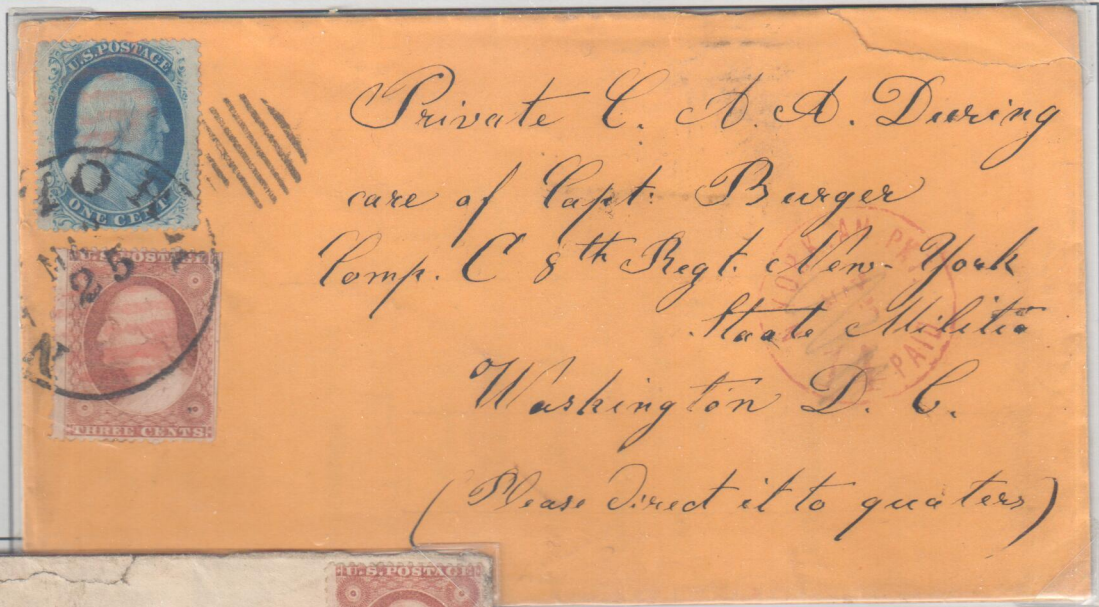 U.S. POSTAGE
ONE CENT
YORK
MAY
25
U.S. POSTAGE
THREE CENTS
Private C. A. A. Duering
care of Capt: Burger
Comp. C 8th Regt. New-York
Staate Militia
Washington D. C.
(Please direct it to quaters)
YORK
PAID
U.S. POSTAGE